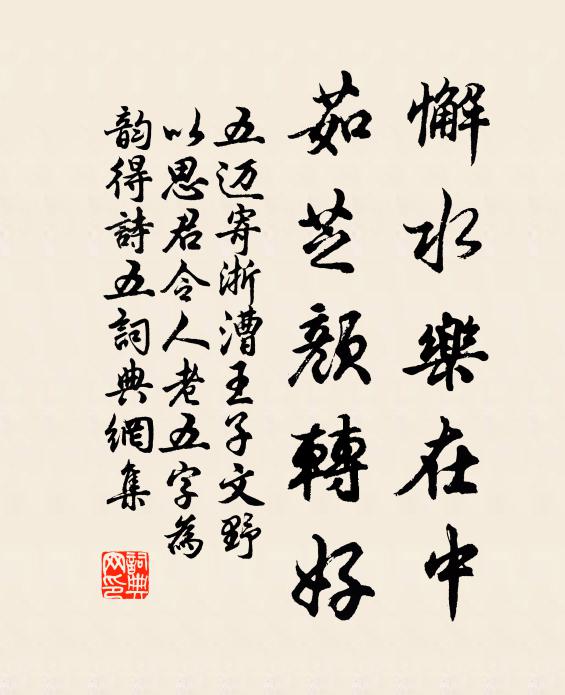 懈水樂在中
茹芝顏轉好
五迈寄浙漕王子文野
以思君令人老五字為
韵得詩五詞典網集
詞典
网印